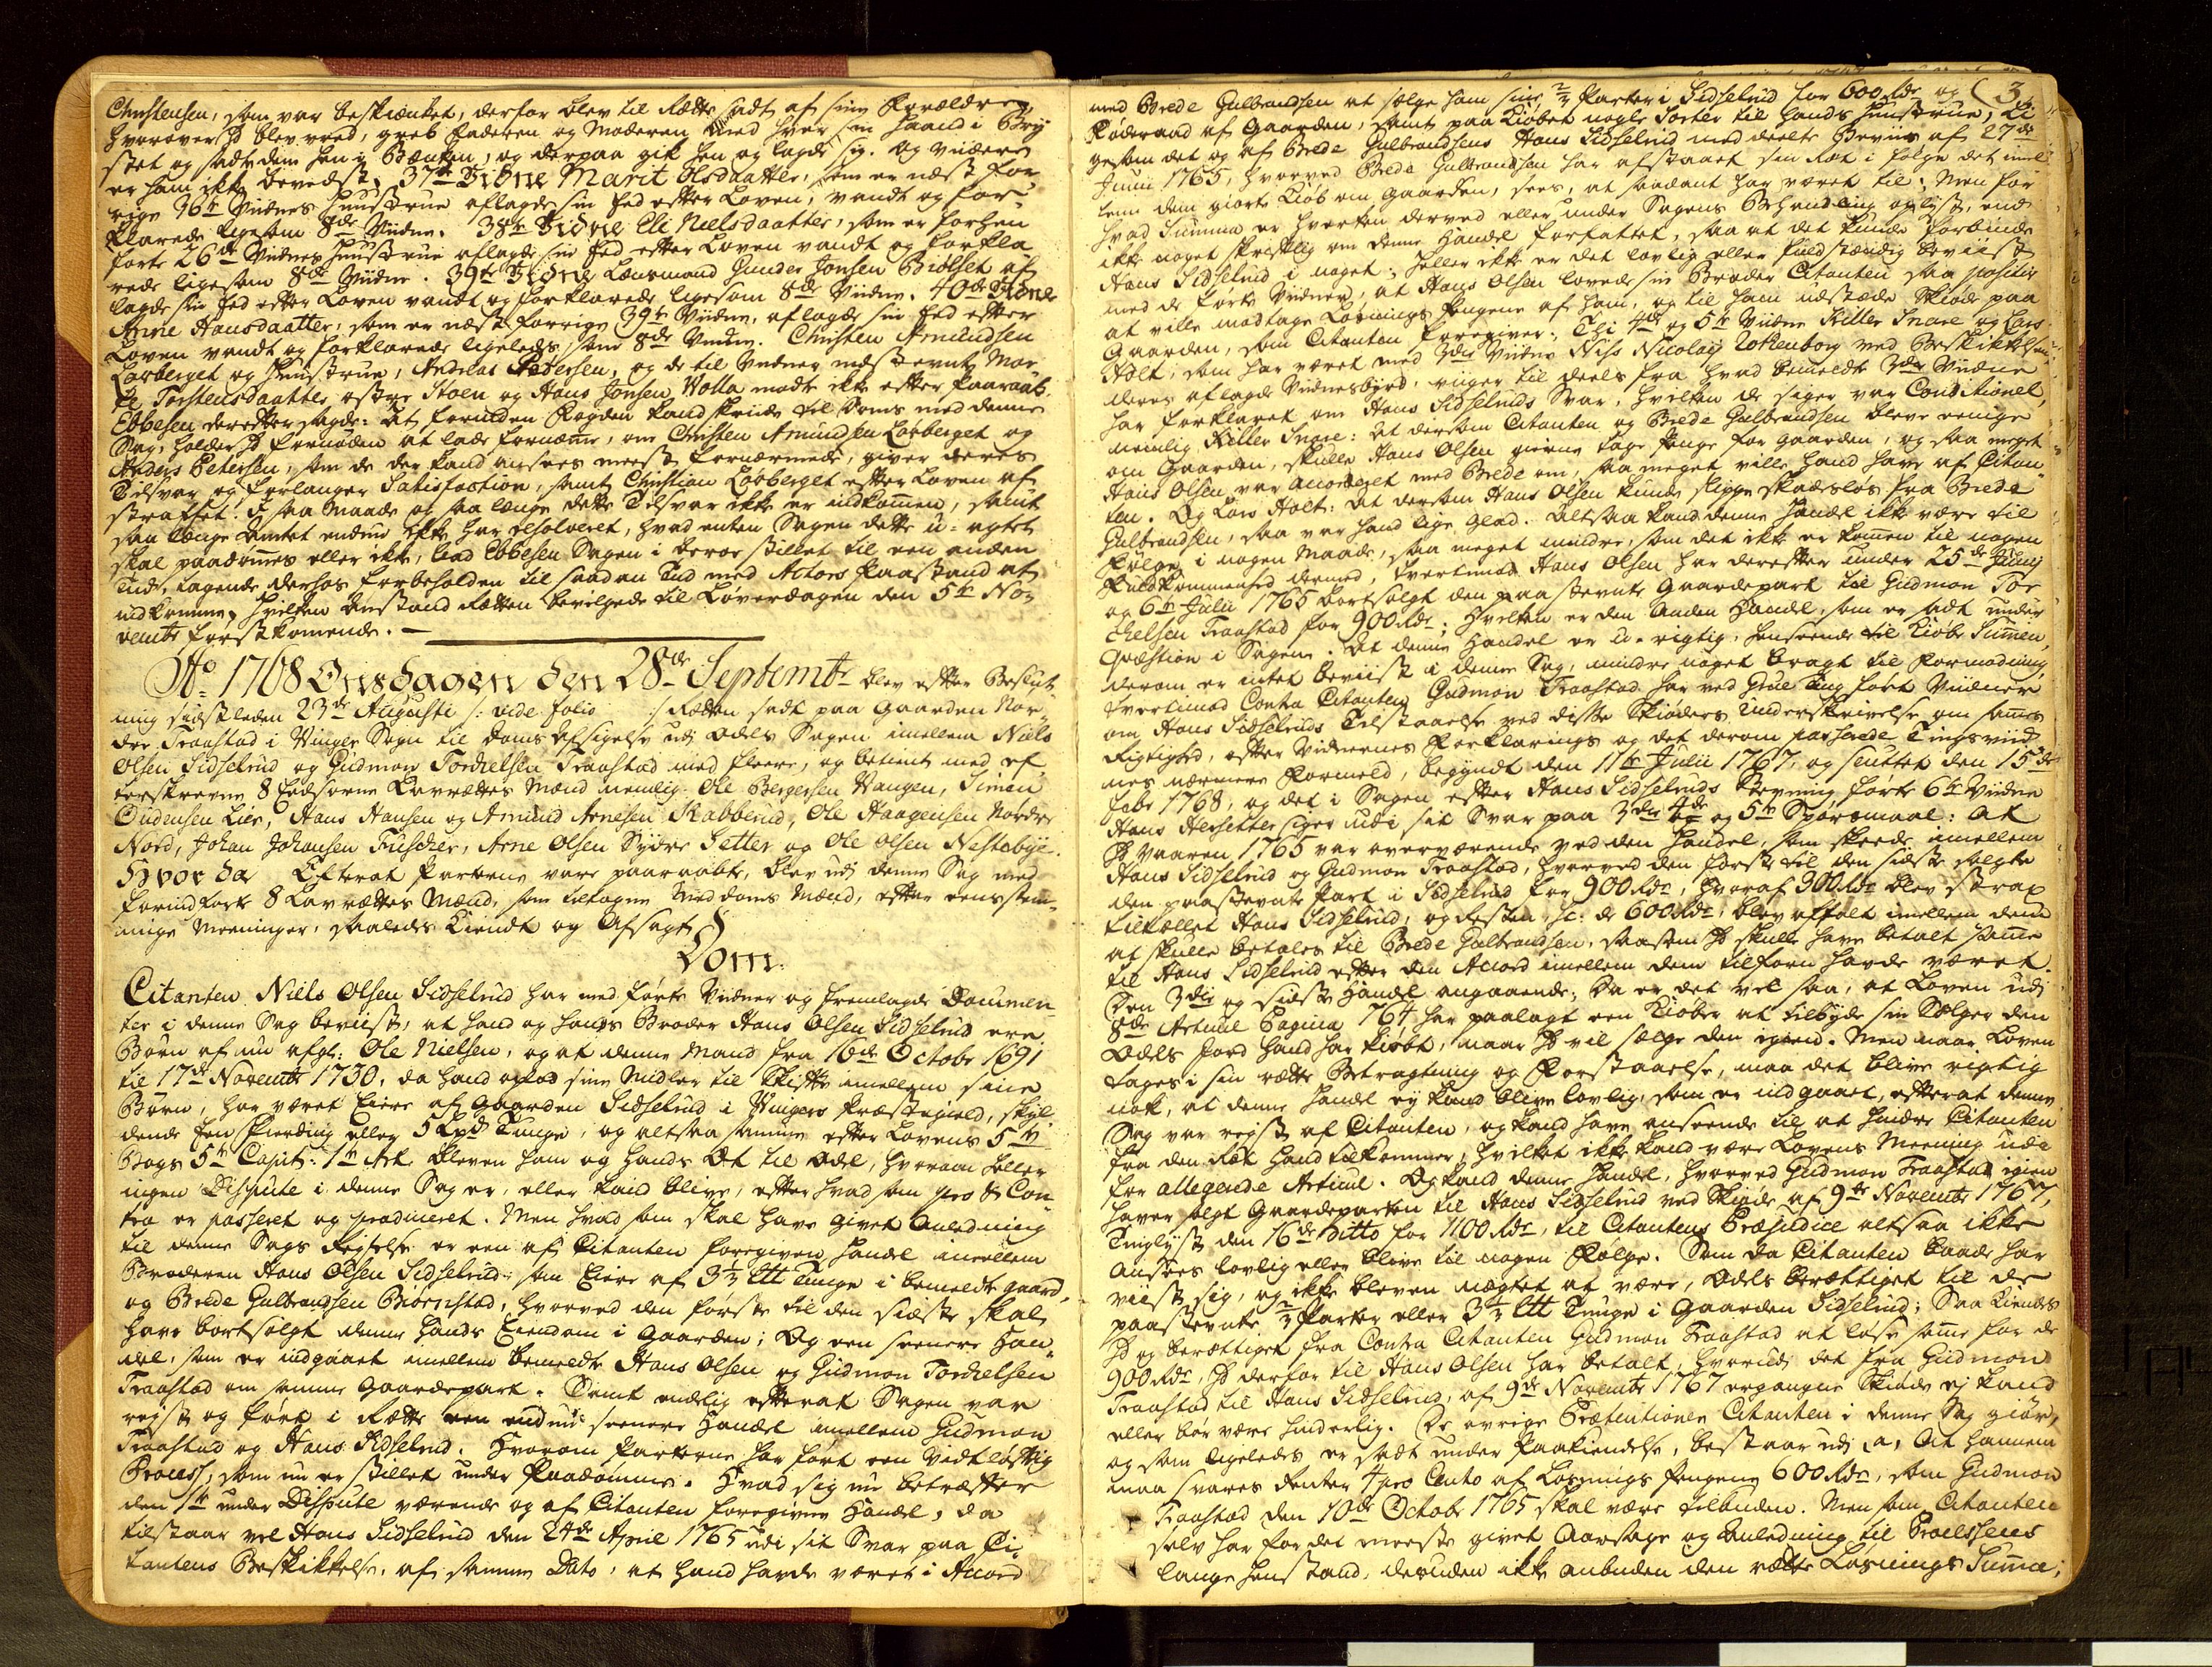 Christensen, som var beskiænket, derfor blev til Rette sadt af sine Forældre,
hvorover H blev vred, greb Faderen og Moderen med hver sin Haand i Bry-
stet og satte dem hen i Bænken, og derpaa gik hen og lagde sig. Og viidere
er ham ikke bevidst. 37te Vidne Marit Olsdaatter, som er næst for-
rige 36te Vidnes Huustrue aflagde sin Eed efter Loven, vandt og for-
klarede ligesom 8de Vidne. 38te Vidne Eli Nielsdaatter, som er forhen
førte 26de Vidnes Huustrue aflagde sin Eed efter Loven vandt og forkla-
rede ligesom 8de Vidne. 39te Vidne Lænsmand Gunder Jonsen Biølset af-
lagde sin Eed efter Loven vandt og forklarede ligesom 8de Vidne. 40de Vidne
Anne Hansdaatter, som er næst forrige 39te Vidne, aflagde sin Eed efter
Loven vandt og forklarede ligeledes som 8de Vidne. Christen Amundsen
Lørberget og Huustrue, Andreas Pedersen, og de til Vidner indstevnte Mar-
te Torstensdaatter østre Stoen og Hans Jonsen Wolla mødte ikke efter paaraab.
Ebbesen derefter sagde: At forinden Fogden kand skride til Doms med denne
Sag, holder H fornøden at lade fornemme, om Christen Amundsen Lørberget og
Anders Petersen, som de der kand ansees meest fornærmede, giver deres
Tilsvar og forlanger Satisfaction, samt Christian Lørberget efter Loven af-
straffet. I saa Maade og saa længe dette Tilsvar ikke er indkommen, samt
saa længe Amtet endnu ikke har resolveret, hvad enten Sagen dette u-agtet
skal paadømmes eller ikke, lod Ebbesen Sagen i beroe stillet til een anden
Tiid, tagende derhos forbeholden til saadan Tiid med Actors Paastand at
indkomme, hvilken Anstand Retten bevilgede til Løverdagen den 5te No-
vembr førstkomende. —
Ao 1768 Onsdagen den 28de Septembr blev efter Beslut-
ning sidstleden 23de Augusti /: vide folio :/ Retten sadt paa Gaarden Nor-
dre Traastad i Vinger Sogn til Doms Afsigelse udj Odels Sagen imellem Niels
Olsen Sidselrud og Gudmon Torchelsen Traastad med fleere, og betient med ef-
terskrevne 8 Eedsorne Lavrettes Mænd nemlig: Ole Bergersen Vangen, Simen
Endensen Lier, Hans Hansen og Amund Arnesen Skabberud, Ole Haagensen Nordre
Nord, Johan Johansen Fuscher, Arne Olsen Syndre Setter og Ole Olsen Nestebye.
Hvor da Efterat Parterne vare paaraabte, blev udj denne Sag med
forindførte 8 Lavrettes Mænd, som tiltagne Meddoms Mænd, efter eensstem-
mige Meeninger, saaledes Kiendt og Afsagt
Dom:
Citanten Niels Olsen Sidselrud har med førte Vidner og fremlagde Documen-
ter i denne Sag beviist, at hand og hands Broder Hans Olsen Sidselrud ere
Børn af nu afgl: Ole Nielsen, og at denne Mand fra 16de Octobr 1691
til 17de Novembr 1730, da hand oplod sine Midler til Skifte imellem sine
Børn, har været Eiere af Gaarden Sidselrud i Vingers Præstegield, skyl-
dende Een Fierding eller 5 Lpd Tunge, og altsaa samme efter Lovens 5te
Bogs 3de Capit: 1te Art: bleven ham og hands Æt til Odel, hvorom heller
ingen Dispute i denne Sag er, eller kand blive, efter hvad som pro & Con-
tra er passeret og produceret. Men hvad som skal have givet Anledning
til denne Sags Rejselse er een af Citanten foregiven Handel imellem
Broderen Hans Olsen Sidselrud, som Eiere af 3 1/3 Ltt Tunge i bemeldte Gaard,
og Brede Gulbrandsen Biørnstad, hvorved den første til den sidste skal
have bortsolgt denne hands Eiendom i Gaarden; Og een seenere Han-
del, som er indgaaet imellem bemeldte Hans Olsen og Gudmon Torchelsen
Traastad om samme Gaardepart. Samt endelig efterat Sagen var
rejst og ført i Rette een endnu seenere Handel imellem Gudmon
Traastad og Hans Sidselrud. Hvorom Parterne har ført een vidtløftig
Process, som nu er stillet under Paadømme. Hvad sig nu betræffer
den 1te under Dispute værende og af Citanten foregivne Handel, da
tilstaar vel Hans Sidselrud den 24de April 1765 udi sit Svar paa Ci-
tantens Beskikkelse, af samme Dato, at hand havde været i Accord
3.
med Brede Gulbrandsen at sælge ham sine 2/3 Parter i Sidselrud for 600 Rdr og
Føderaad af Gaarden, samt paa Kiøbet nogle Sorter til hands Huustrue, li-
gesom det og af Brede Gulbrandsens Hans Sidselrud meddeelte Beviis af 27de
Junii 1765, hvorved Brede Gulbrandsen har afstaaet sin Ret i følge det imel-
lem dem giorte Kiøb om Gaarden, sees, at saadant har været til; Men for
hvad Summa er hverken derved eller under Sagens Behandling oplyst, end
ikke noget skriftlig om denne Handel forfattet, saa at det kunde forbinde
Hans Sidselrud i noget; heller ikke er det lovlig eller fuldstændig beviist
med de førte Vidner, at Hans Olsen lovede sin Broder Citanten saa positiv
at ville modtage Løsnings Pengene af ham, og til ham udstæde Skiøde paa
Gaarden, som Citanten foregiver; Thi 4de og 5te Vidne Kitter Snare og Lars
Holt, som har været med 3die Vidne Niss Nicolay Rotenborg ved Beskikkelsen
deres aflagde Vidnesbyrd, viiger til deels fra hvad bemeldte 3die Vidne
har forklaret om Hans Sidselruds Svar, hvilken de siger var Conditionel,
nemlig Kitter Snare: At dersom Citanten og Brede Gulbrandsen bleve eenige
om Gaarden, skulle Hans Olsen gierne tage Penge for Gaarden, og saa meget
Hans Olsen var Accorderet med Brede om, saa meget ville hand have af Citan-
ten. Og Lars Holt: At dersom Hans Olsen kunde slippe skadesløs fra Brede
Gulbrandsen, saa var hand lige glad. Altsaa kand denne Handel ikke være til
Følge i nogen Maade, saa meget mindre, som det ikke er kommen til nogen
Fuldkommenhed dermed, tvertimod Hans Olsen har derefter under 25de Junij
og 6te Julii 1765 bortsolgt den paastevnte Gaardepart til Gudmon Tor-
chelsen Traastad for 900 Rdr; Hvilken er den Anden Handel, som er sadt under
Qvæstion i Sagen. At denne Handel er u-rigtig, henseende til Kiøbe Summen,
derom er intet beviist i denne Sag, mindre noget bragt til Formodning,
tvertimod Contra Citanten Gudmon Traastad har ved Grue Ting ført Vidner
om Hans Sidselruds Tilstaaelse ved disse Skiøders Underskrivelse om sammes
Rigtighed, efter Vidnernes Forklarings og det derom passerede Tingsvid-
nes nærmere Formeld, begyndt den 11te Julii 1767, og sluttet den 15de
Febr 1768, og det i Sagen efter Hans Sidselruds Stevning førte 6te Vidne
Hans Hersetter siger udi sit Svar paa 3die 4de og 5te Spørsmaal: At
H Vaaren 1765 var overværende ved den Handel, som skeede imellem
Hans Sidselrud og Gudmon Traastad, hvorved den første til den sidste solgte
den paastevnte Part i Sidselrud for 900 Rdr, hvoraf 300 Rdr blev strax
tiltællet Hans Sidselrud, og Resten, sc: de 600 Rdr, blev aftalt imellem dem
at skulle betales til Brede Gulbrandsen, saasom H skulle have betalt samme
til Hans Sidselrud efter den Accord imellem dem tilforn havde været.
Den 3die og sidste Handel angaaende, da er det vel saa, at Loven udj
8de Articul Pagina 764 har paalagt een Kiøber at tilbyde sin Sælger den
Odels Jord hand har kiøbt, naar H vil sælge den igien. Men naar Loven
tages i sin rette Betragtning og Forstaaelse, maa det blive rigtig
nok, at denne Handel ey kand blive lovlig, som er indgaaet, efterat denne
Sag var rejst af Citanten, og kand have anseende til at hindre Citanten
fra den Ret hand tilkommer, hvilket ikke kand være Lovens Meening udi
for allegende Articul. Og kand denne Handel, hvorved Gudmon Traastad igien
haver solgt Gaardeparten til Hans Sidselrud ved Skiøde af 9de Novembr 1767,
Tinglyst den 16de ditto for 1100 Rdr, til Citantens Præjudice altsaa ikke
ansees lovlig eller blive til nogen Følge. Som da Citanten baade har
viist sig, og ikke bleven nægtet at være, Odels berettiget til de
paastevnte 2/3 Parter eller 3 1/3 Ltt Tunge i Gaarden Sidselrud; Saa kiendes
H og berettiget fra Contra Citanten Gudmon Traastad at løse samme for de
900 Rdr, H derfor til Hans Olsen har betalt, hvorudi det fra Gudmon
Traastad til Hans Sidselrud, af 9de Novembr 1767 ergangne Skiøde ej kand
eller bør være hinderlig. De øvrige Prætentioner Citanten i denne Sag giør,
og som ligeledes er sadt under Paakiendelse, bestaar udj a, At hannem
maa svares Renter 4 pro Cento af Løsnings Pengene 600 Rdr, som Gudmon
Traastad den 10de Octobr 1765 skal være tilbuden. Men som Citanten
selv har for det meeste givet Aarsage og Anledning til Processens
lange henstand, desuden ikke anbuden den rette Løsnings Summa;